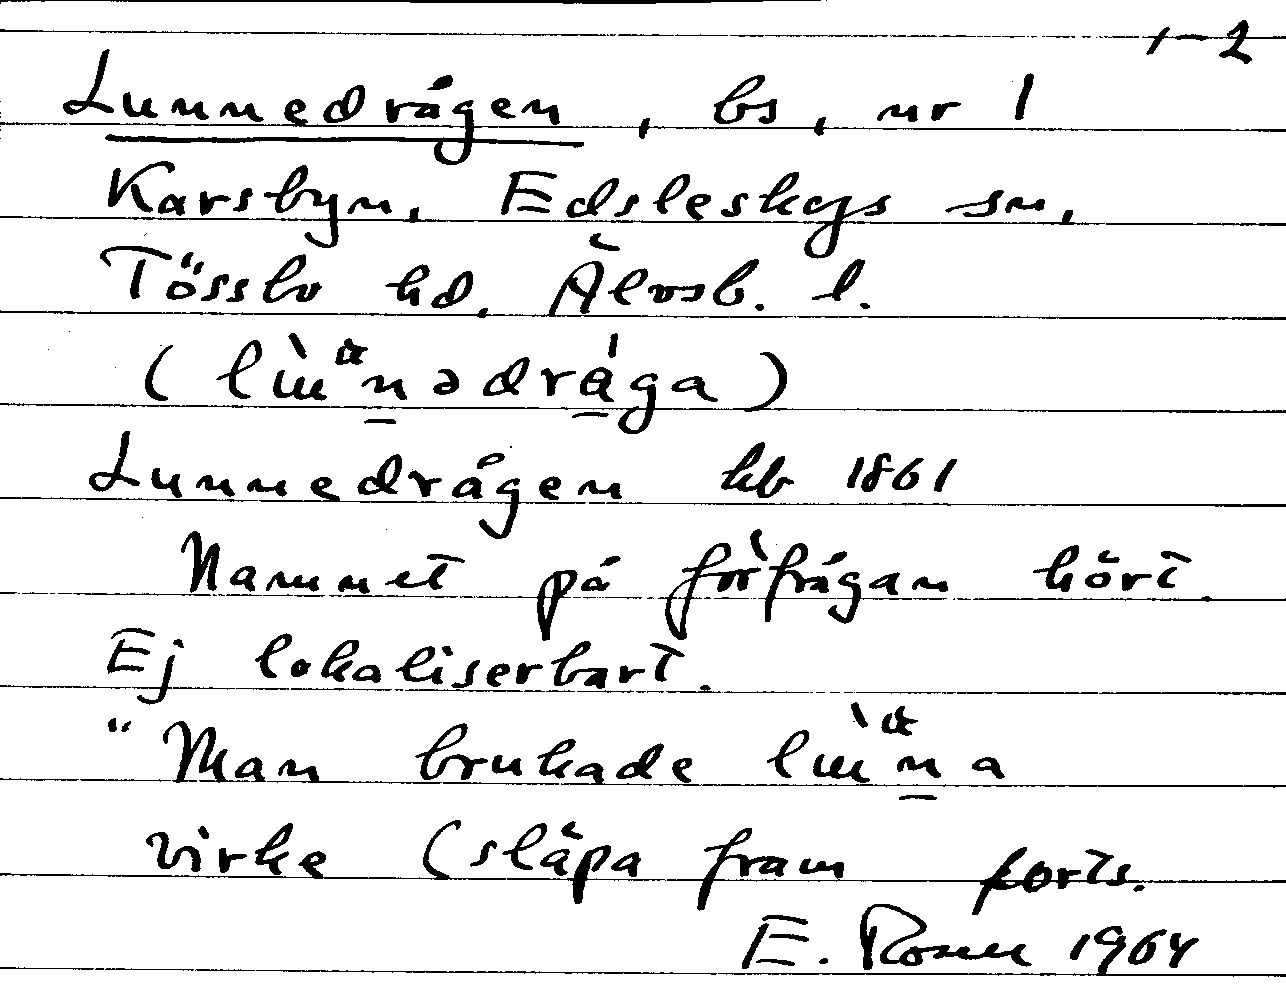 1-2
Lunnedrågen, bs, nr 1
Karsbyn, Edsleskogs sn,
Tössbo hd. Älvsb. l.
Lunnedrågen hb 1861
Namnet på förfrågan hört.
Ej lokaliserbart.
"Man brukade
virke (släpa fram forts.
E. Rosen 1964